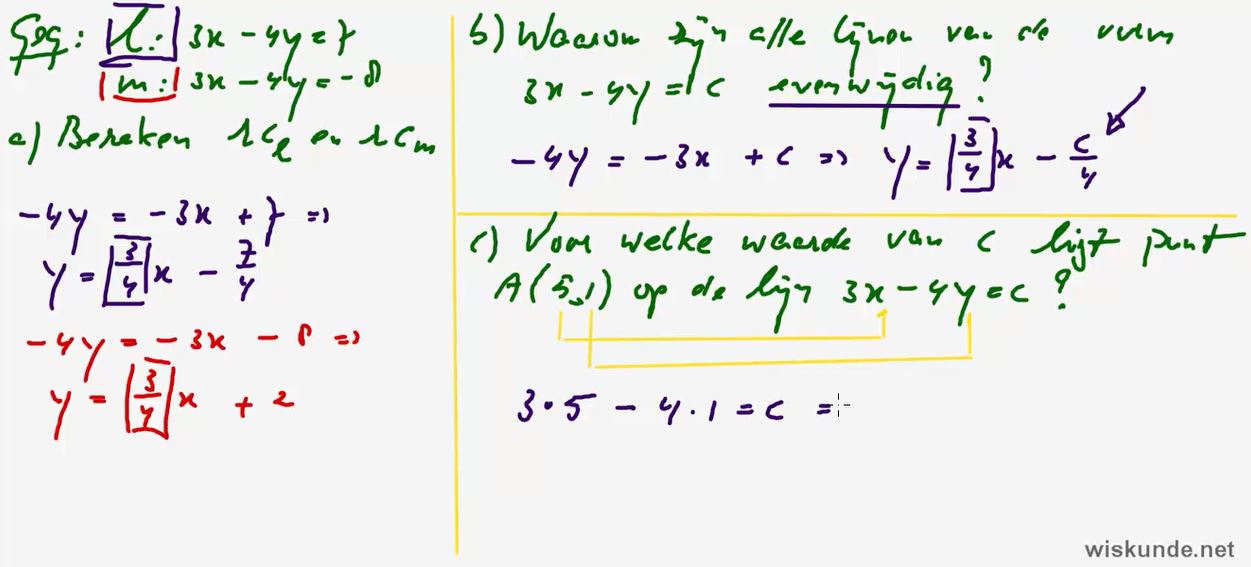 Geg: l: 3x - 4y = 7
m: 3x - 4y = -8
a) Bereken rc_l en rc_m
-4y = -3x + 7 =>
y = 3/4 x - 7/4
-4y = -3x - 8 =>
y = 3/4 x + 2
b) Waarom zijn alle lijnen van de vorm
3x - 4y = c evenwijdig?
-4y = -3x + c => y = 3/4 x - c/4
c) Voor welke waarde van c ligt punt
A(5,1) op de lijn 3x - 4y = c?
3 · 5 - 4 · 1 = c =
wiskunde.net